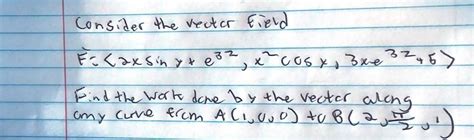 Consider the vector field
F = <2x sin y + e^3z, x^2 cos x, 3xe^3z + 5>
Find the work done by the vector along
any curve from A(1,0,0) to B(2, π/2, 1)